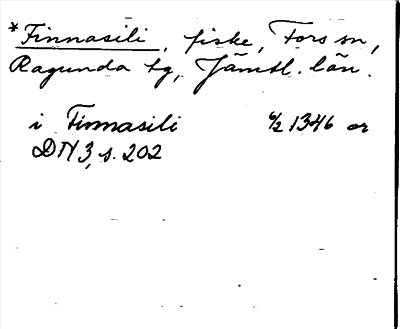 *Finnasili, fiske, Fors sn,
Ragunda tg, Jämtl. län.
i Finnasili 6/2 1346 or
DN 3, s. 202